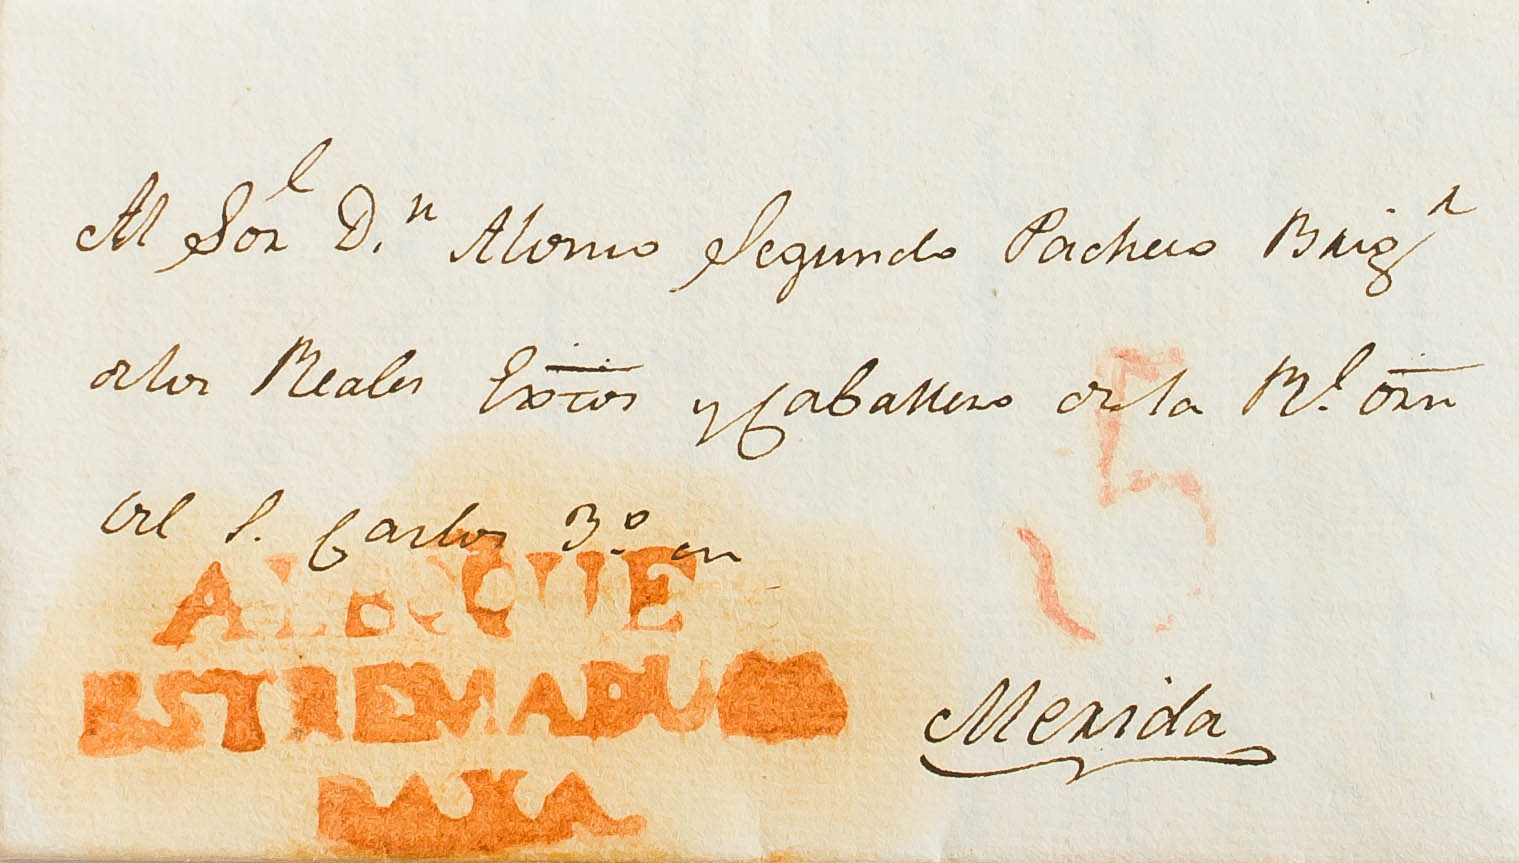 Al Sor.l D.n Alonso Segundo Pacheco Brig.r
de los Reales Extos y Caballero de la Rl. orn
del S. Carlos 3.º en
5
ALBQUE
ESTREMADURA
BAXA
Merida